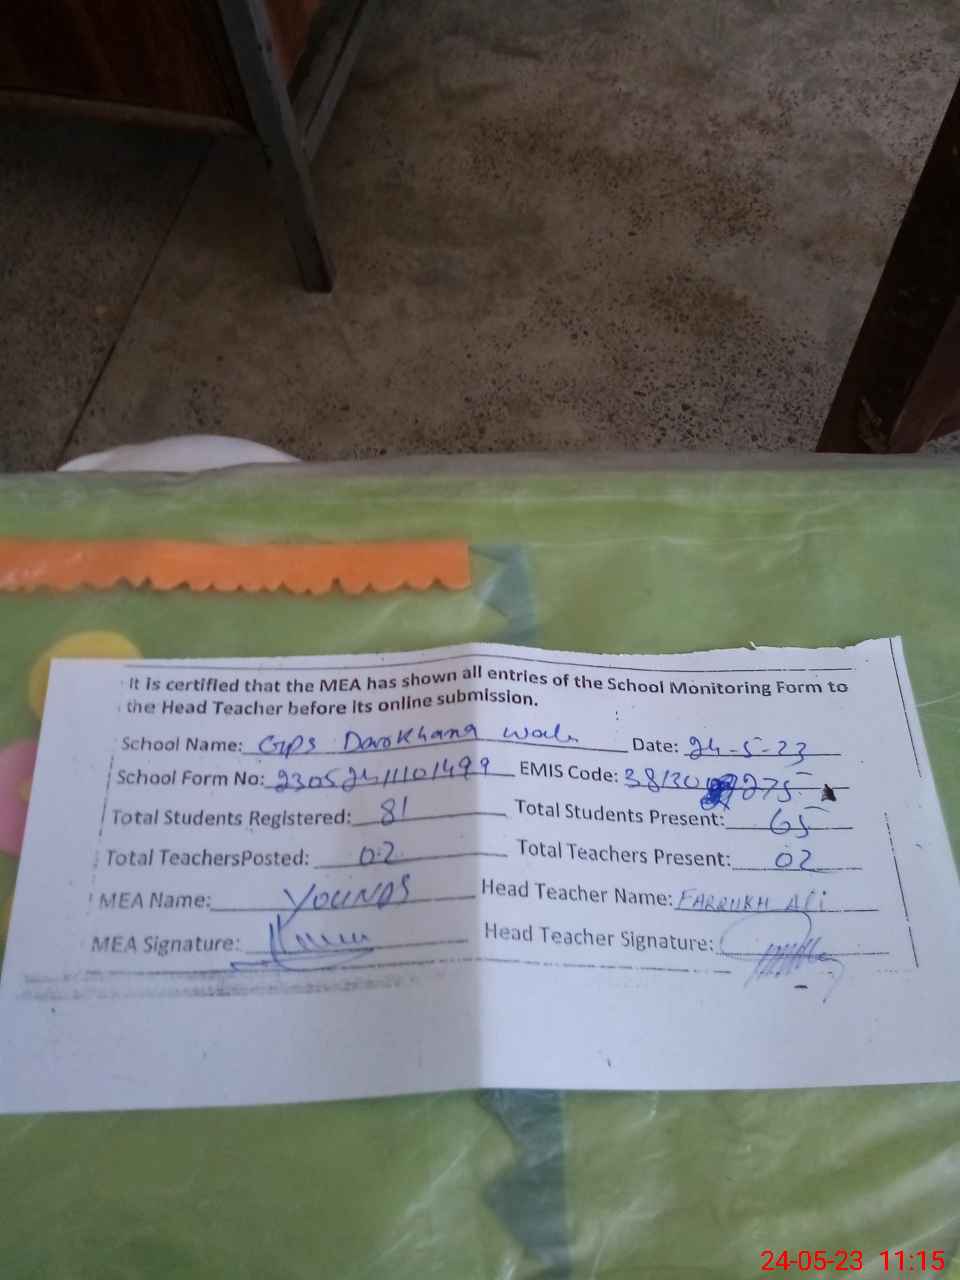 It is certified that the MEA has shown all entries of the School Monitoring Form to
the Head Teacher before its online submission.
School Name: GPS Darokhana Wala Date: 24-5-23
School Form No: EMIS Code:
Total Students Registered: 81 Total Students Present: 65
Total TeachersPosted: 02 Total Teachers Present: 02
MEA Name: YOUNAS Head Teacher Name: FARRUKH Ali
MEA Signature: Head Teacher Signature:
24-05-23 11:15